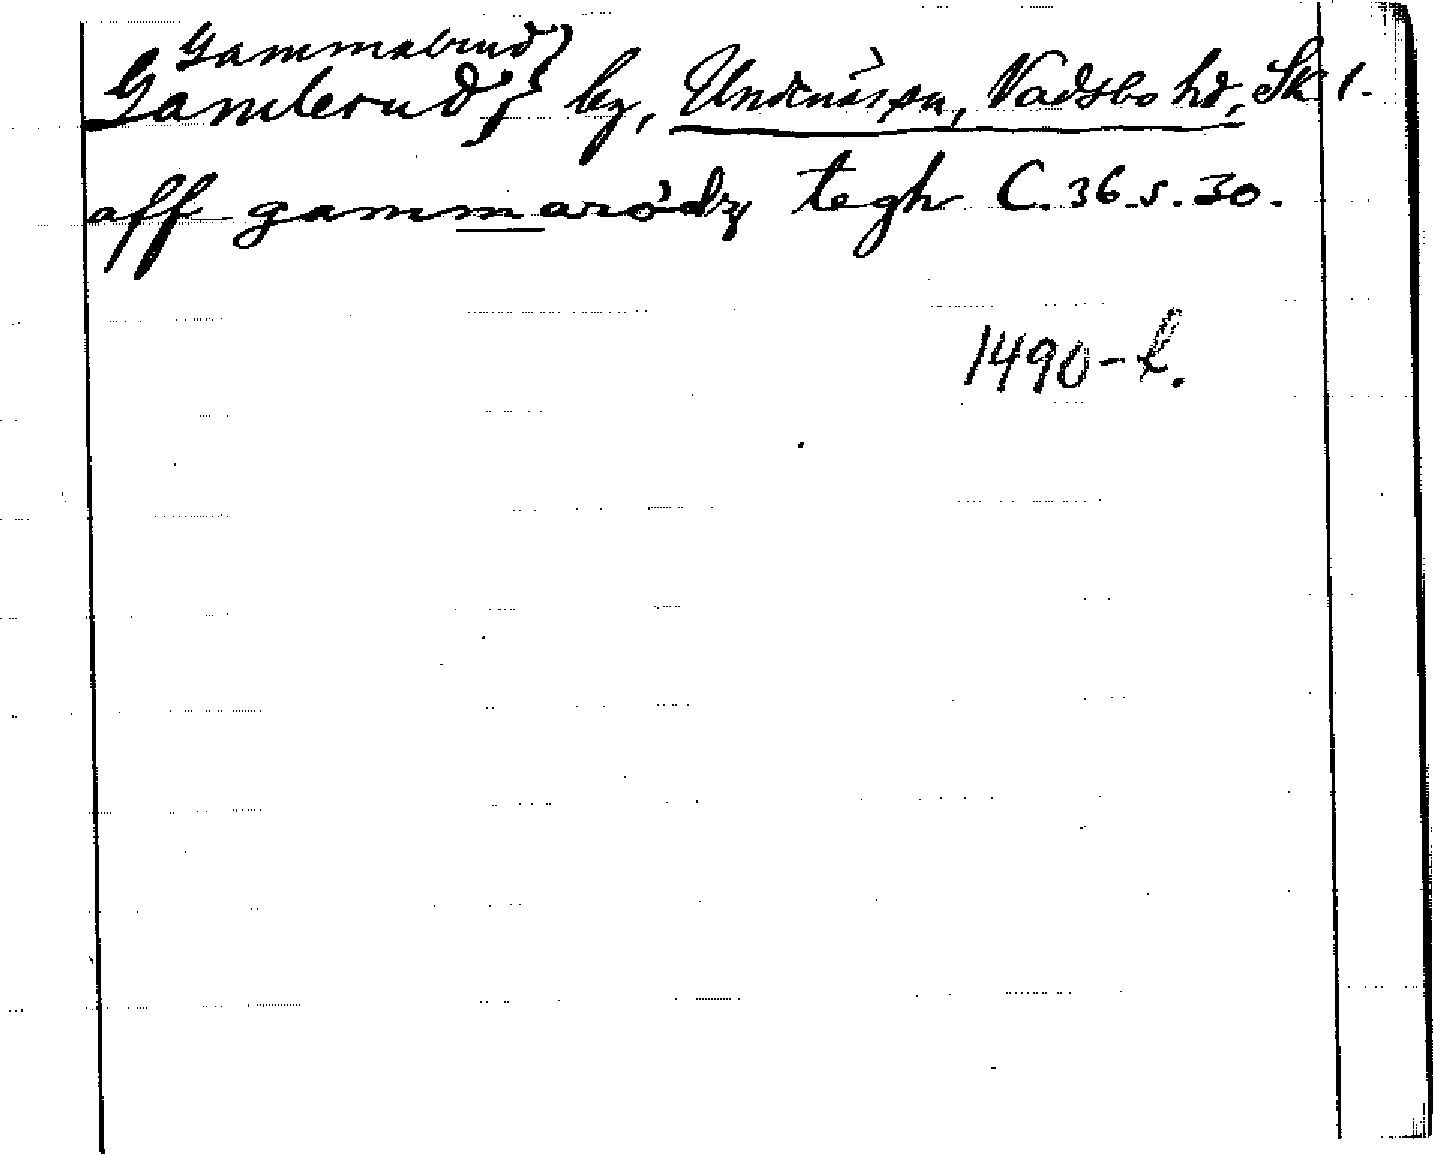 Gammalrud }
Gamlerud, } by, Undenäs sn, Vadsbo hd, Sk l.
aff gammarödz tegh C. 36. s. 30.
1490-t.